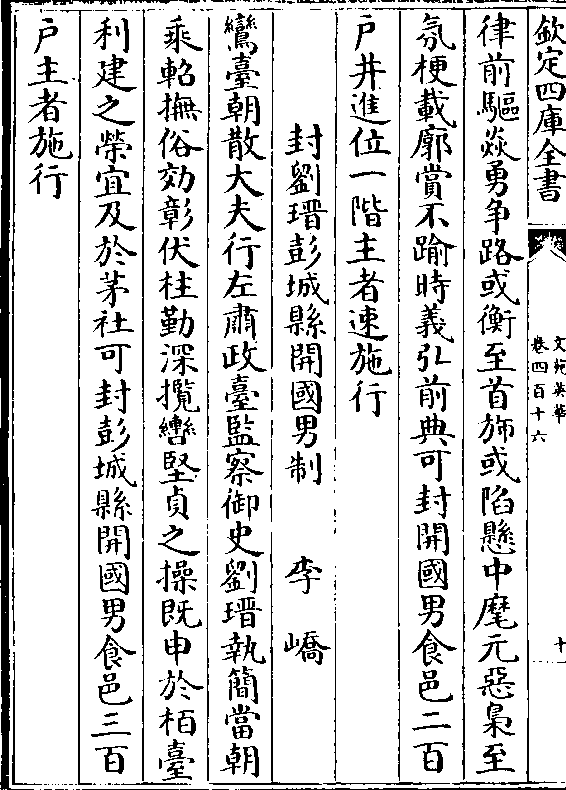 欽定四庫全書
文苑英華
卷四百十六
十
律前驅焱勇争路或衡至首斾或陷懸中麾元惡梟至
氛梗載廓賞不踰時義弘前典可封開國男食邑二百
戸并進位一階主者速施行
封劉㻛彭城縣開國男制 李嶠
鸞臺朝散大夫行左肅政臺監察御史劉㻛執簡當朝
乘軺撫俗効彰伏柱勤深攬轡堅貞之操既申於栢臺
利建之榮宜及於茅社可封彭城縣開國男食邑三百
戸主者施行